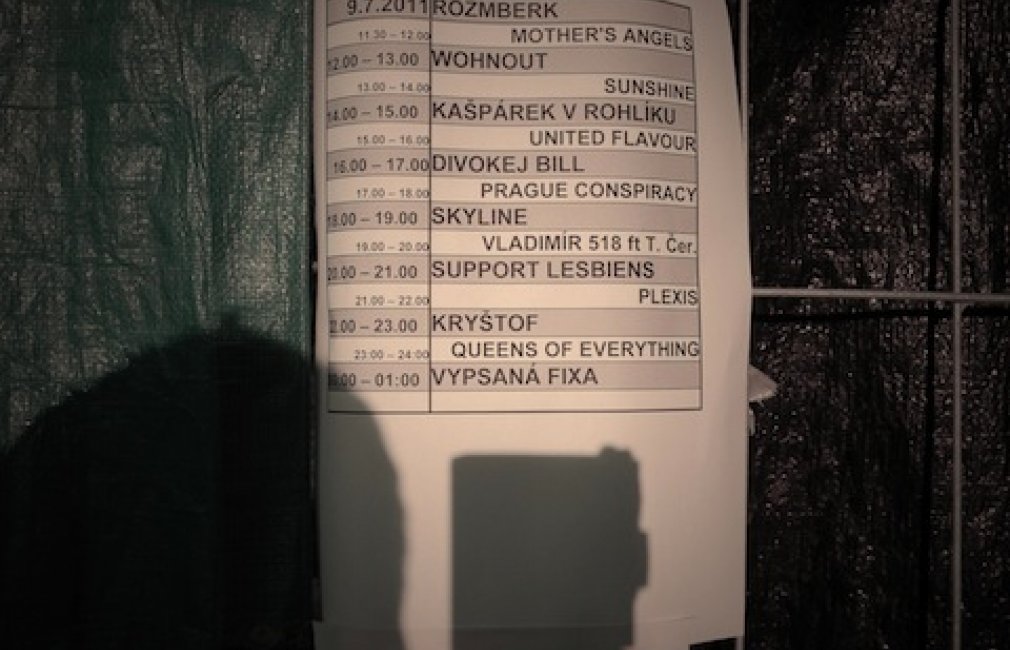 9.7.2011 ROZMBERK
11.30 – 12.00 MOTHER'S ANGELS
12.00 – 13.00 WOHNOUT
13.00 – 14.00 SUNSHINE
14.00 – 15.00 KAŠPÁREK V ROHLÍKU
15.00 – 16.00 UNITED FLAVOUR
16.00 – 17.00 DIVOKEJ BILL
17.00 – 18.00 PRAGUE CONSPIRACY
18.00 – 19.00 SKYLINE
19.00 – 20.00 VLADIMÍR 518 ft T. Čer.
20.00 – 21.00 SUPPORT LESBIENS
21.00 – 22.00 PLEXIS
22.00 – 23.00 KRYŠTOF
23:00 – 24:00 QUEENS OF EVERYTHING
00:00 – 01:00 VYPSANÁ FIXA